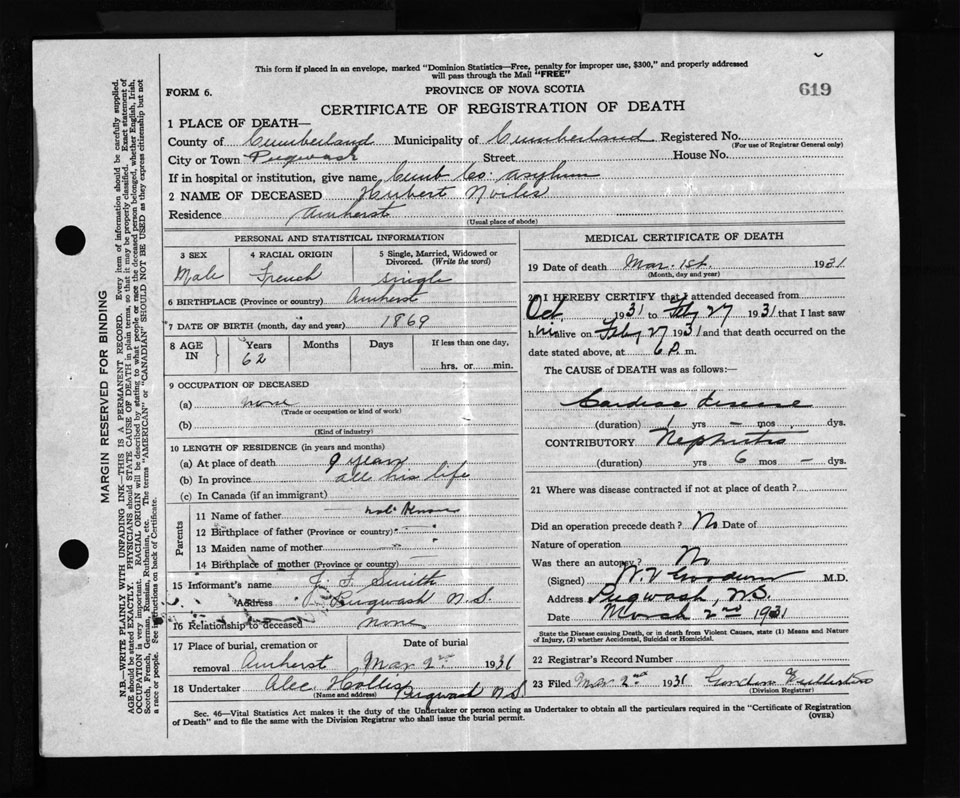 This form if placed in an envelope, marked "Dominion Statistics—Free, penalty for improper use, $300," and properly addressed
will pass through the Mail "FREE"
FORM 6.
PROVINCE OF NOVA SCOTIA
619
CERTIFICATE OF REGISTRATION OF DEATH
1 PLACE OF DEATH—
County of Cumberland Municipality of Cumberland Registered No.
(For use of Registrar General only)
City or Town Pugwash Street House No.
If in hospital or institution, give name Cumb Co Asylum
2 NAME OF DECEASED Hubert
Residence Amherst
(Usual place of abode)
PERSONAL AND STATISTICAL INFORMATION
3 SEX 4 RACIAL ORIGIN 5 Single, Married, Widowed or
Divorced. (Write the word)
Male French Single
6 BIRTHPLACE (Province or country) Amherst
7 DATE OF BIRTH (month, day and year) 1869
8 AGE IN Years Months Days If less than one day,
62 hrs. or min.
9 OCCUPATION OF DECEASED
(a) none
(Trade or occupation or kind of work)
(b)
(Kind of industry)
10 LENGTH OF RESIDENCE (in years and months)
(a) At place of death 9 years
(b) In province all his life
(c) In Canada (if an immigrant)
Parents
11 Name of father not known
12 Birthplace of father (Province or country)
13 Maiden name of mother
14 Birthplace of mother (Province or country)
15 Informant's name J. F. Smith
Address Pugwash N.S.
16 Relationship to deceased none
17 Place of burial, cremation or Date of burial
removal Amherst Mar 2nd 1931
18 Undertaker Alec Hollis Pugwash N S
(Name and address)
MEDICAL CERTIFICATE OF DEATH
19 Date of death Mar. 1st. 1931
(Month, day and year)
20 I HEREBY CERTIFY that I attended deceased from
Oct 1931 to Feby 27 1931 that I last saw
him alive on Feby 27 1931 and that death occurred on the
date stated above, at 6 P. m.
The CAUSE of DEATH was as follows:—
Cardiac disease
(duration) yrs — mos. dys.
CONTRIBUTORY Nephritis
(duration) yrs 6 mos — dys.
21 Where was disease contracted if not at place of death?
Did an operation precede death? No Date of
Nature of operation
Was there an autopsy? No
(Signed) M.D.
Address Pugwash, N.S.
Date March 2nd 1931
State the Disease causing Death, or in death from Violent Causes, state (1) Means and Nature
of Injury, (2) whether Accidental, Suicidal or Homicidal.
22 Registrar's Record Number
23 Filed Mar 2nd 1931 Gordon
(Division Registrar)
Sec. 46—Vital Statistics Act makes it the duty of the Undertaker or person acting as Undertaker to obtain all the particulars required in the "Certificate of Registration
of Death" and to file the same with the Division Registrar who shall issue the burial permit.
(OVER)
MARGIN RESERVED FOR BINDING
N.B.—WRITE PLAINLY WITH UNFADING INK—THIS IS A PERMANENT RECORD. Every item of information should be carefully supplied.
AGE should be stated EXACTLY. PHYSICIANS should STATE CAUSE OF DEATH in plain terms, so that it may be properly classified. Exact statement of
OCCUPATION is very important. RACIAL ORIGIN will be described by stating to what people or race the deceased person belonged, whether English, Irish,
Scotch, French, German, Russian, Ruthenian, etc. The terms "AMERICAN" or "CANADIAN" SHOULD NOT BE USED as they express citizenship but not
a race or people. See instructions on back of Certificate.